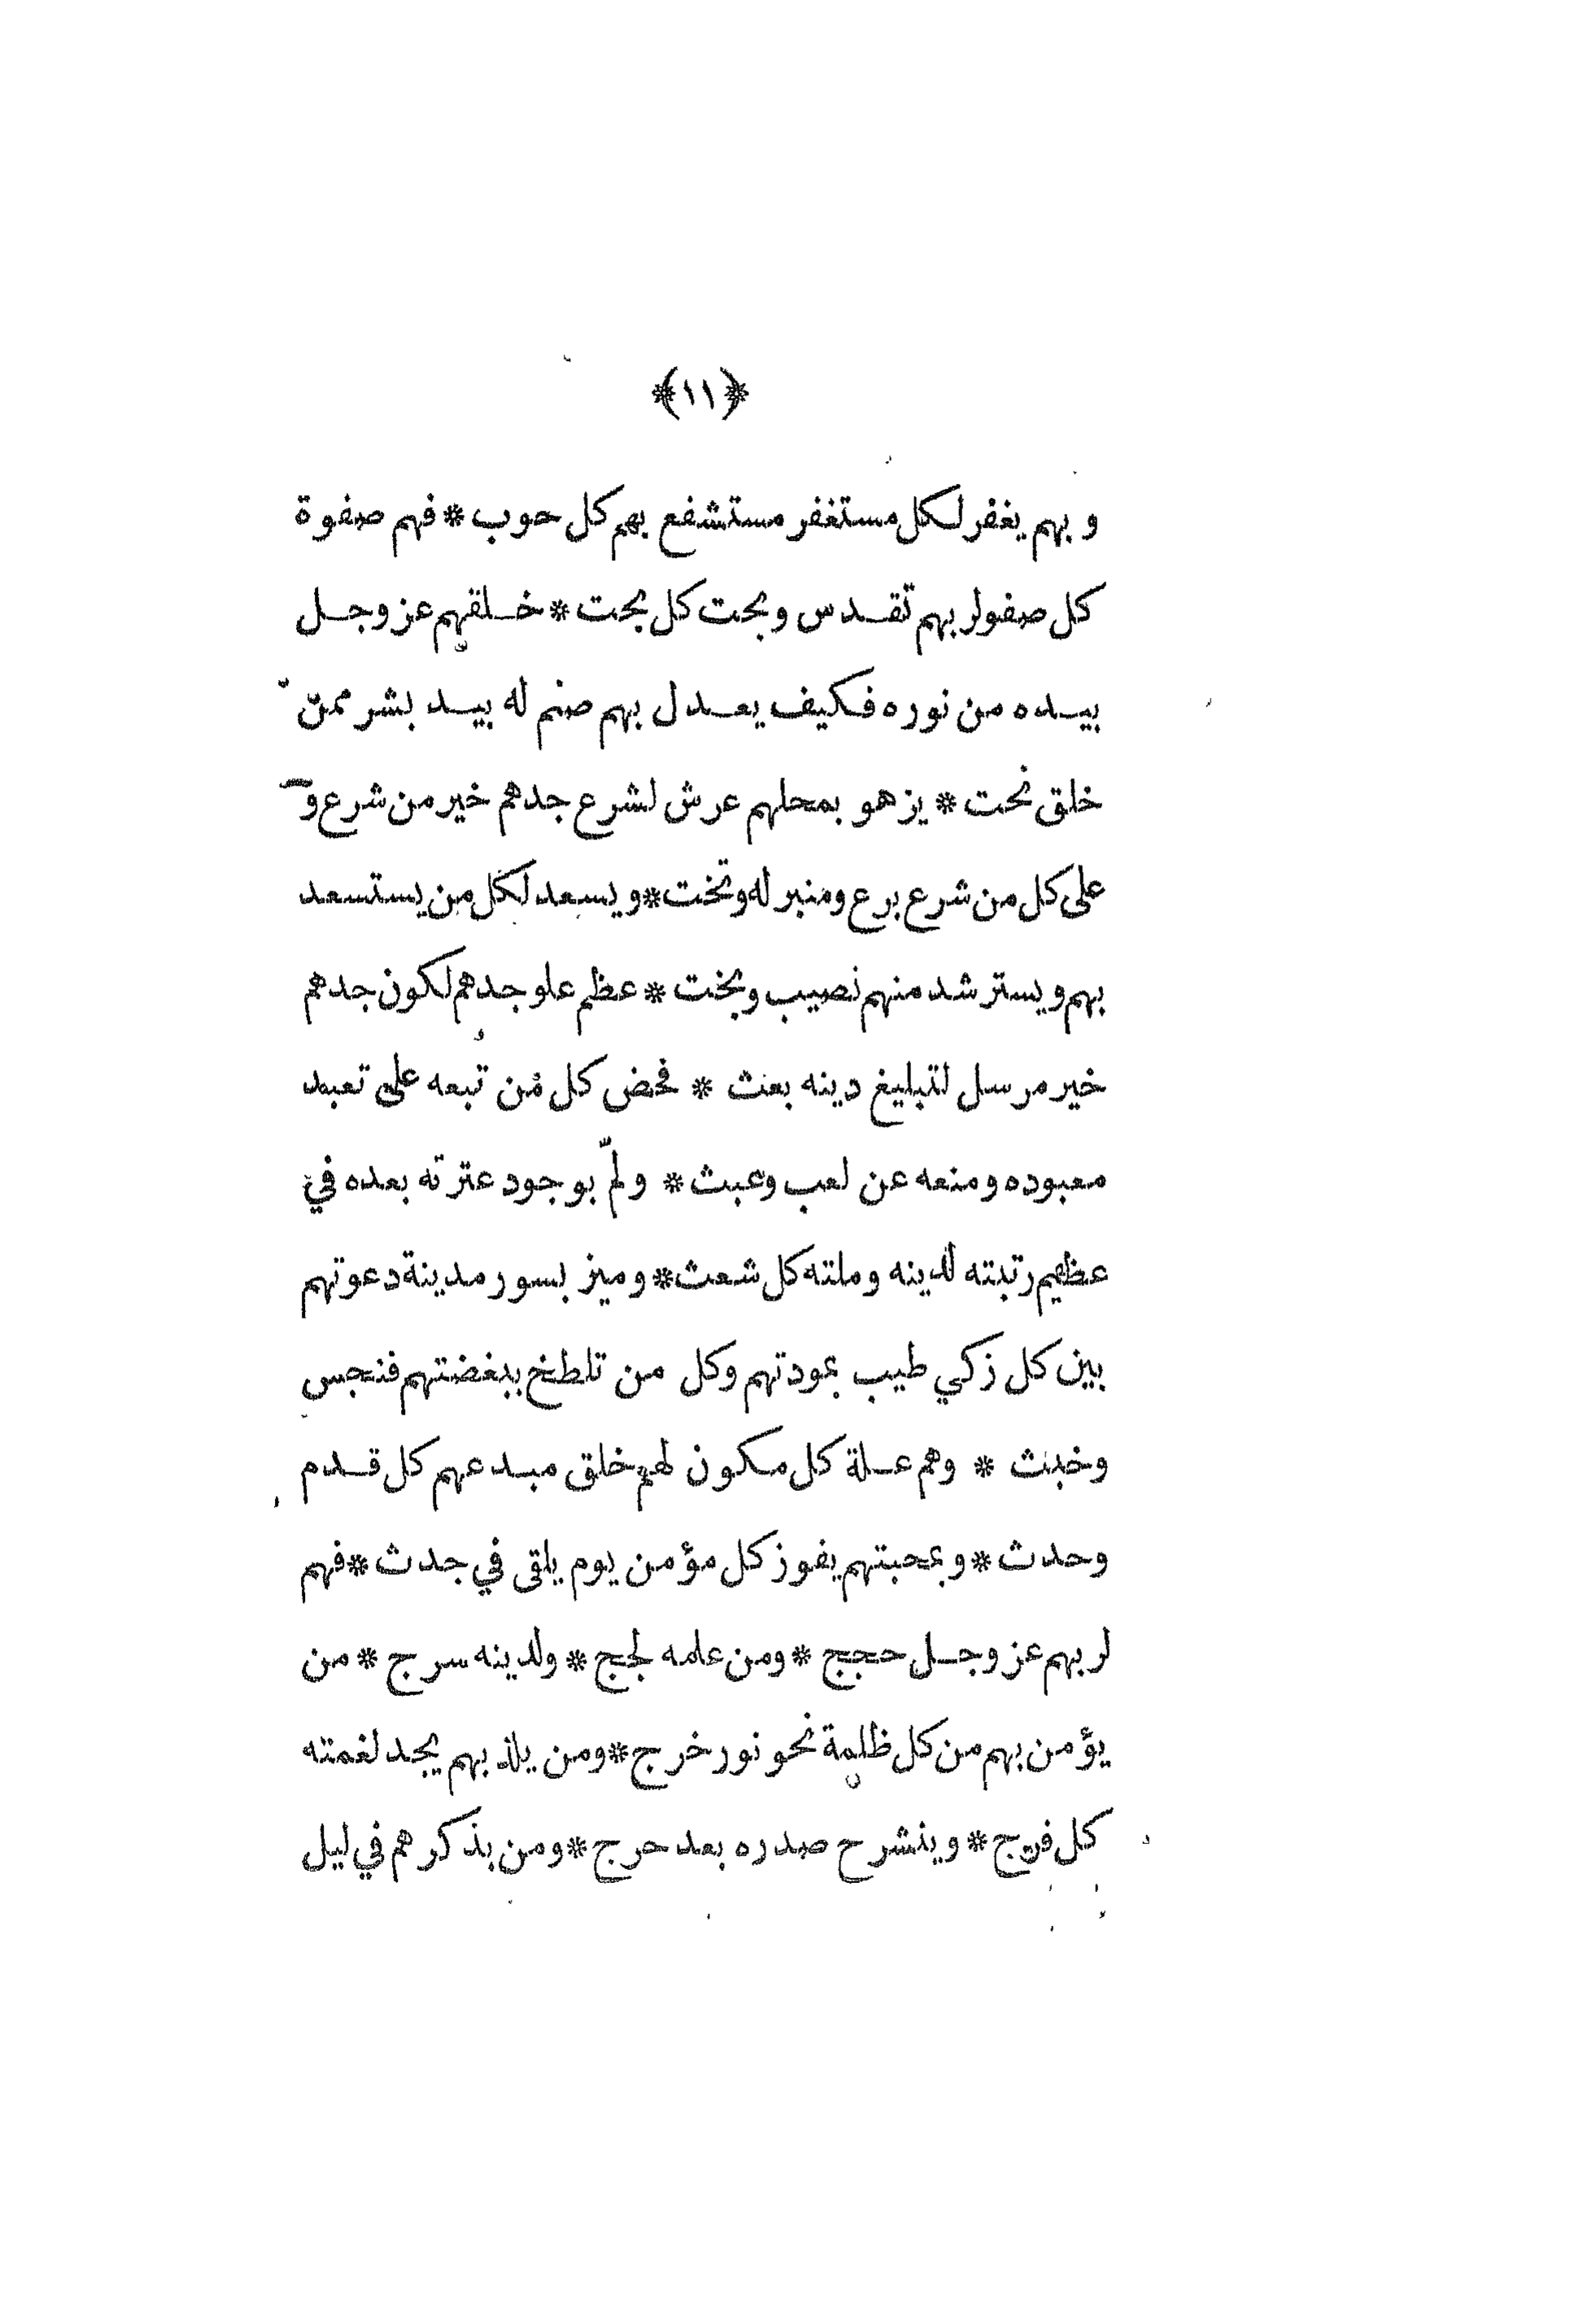 ﴿١١﴾
و بهم يغفر لكل مستغفر مستشفع بهم كل حوب * فهم صفوة
كل صفو لربهم تقدس وبحت كل بحت * خلقهم عز وجل
بيده من نوره فكيف يعدل بهم صنم له بيد بشر ممن
خلق نحت * يزهو بمحلهم عرش لشرع جدهم خير من شرع و
على كل من شرع برع ومنبر له وتخت * ويسعد لكل من يستسعد
بهم ويسترشد منهم نصيب وبخت * عظم علو جدهم لكون جدهم
خير مرسل لتبليغ دينه بعث * فحض كل من تبعه على تعبد
معبوده ومنعه عن لعب وعبث * ولمّ بوجود عترته بعده في
عظيم رتبته لدينه وملته كل شعث * وميز بسور مدينة دعوتهم
بين كل زكي طيب بمودتهم وكل من تلطخ ببغضتهم فنجس
وخبث * وهم علة كل مكون لهم خلق مبدعهم كل قدم
وحدث * وبمحبتهم يفوز كل مؤمن يوم يلقى في جدث * فهم
لربهم عز وجل حجج * ومن علمه لجج * ولدينه سرج * من
يؤمن بهم من كل ظلمة نحو نور خرج * ومن يلذ بهم يجد لغمته
كل فرج * وينشرح صدره بعد حرج * ومن بذكرهم في ليل